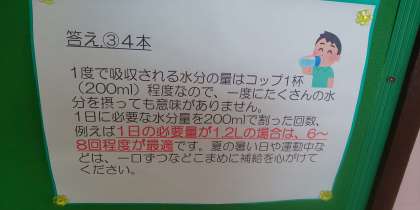 答え③４本
１度で吸収される水分の量はコップ1杯
（200ml）程度なので、一度にたくさんの水
分を摂っても意味がありません。
１日に必要な水分量を200mlで割った回数、
例えば１日の必要量が1.2Lの場合は、6～
8回程度が最適です。夏の暑い日や運動中な
どは、一口ずつなどこまめに補給を心がけて
ください。